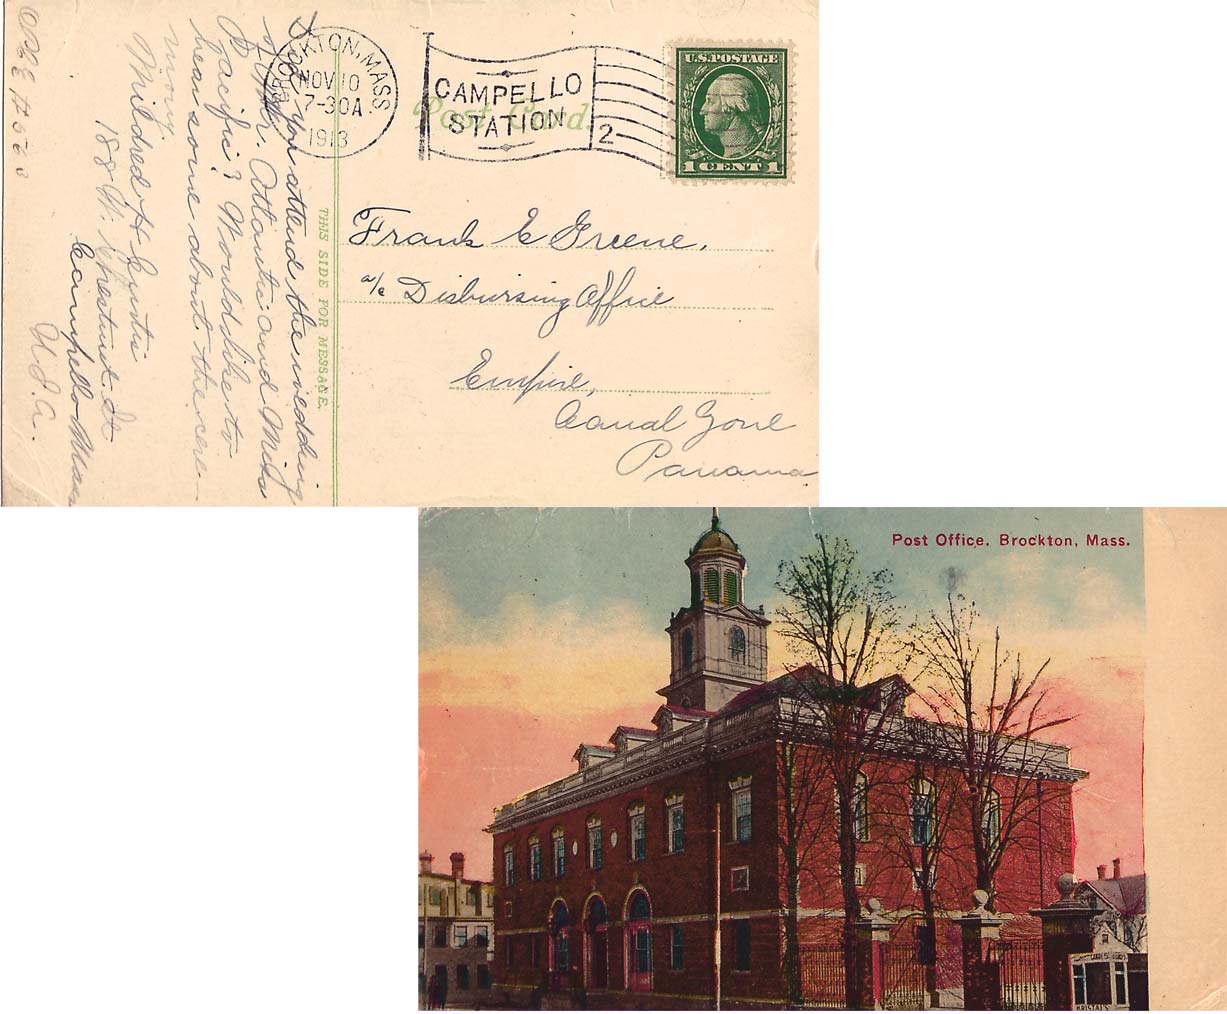 BROCKTON, MASS.
NOV 10
7-30A
1913
CAMPELLO
STATION
2
Post Card.
U.S. POSTAGE
1 CENT 1
Frank E Greene,
a/c Disbursing Office
Empire,
Canal Zone
Panama
THIS SIDE FOR MESSAGE.
Did you attend the wedding
of Mr. Atlantic and Miss
Pacific? Would like to
hear some about the cere-
mony.
Mildred H
188 W. Chestnut St
Campello Mass
U.S.A.
Post Office, Brockton, Mass.